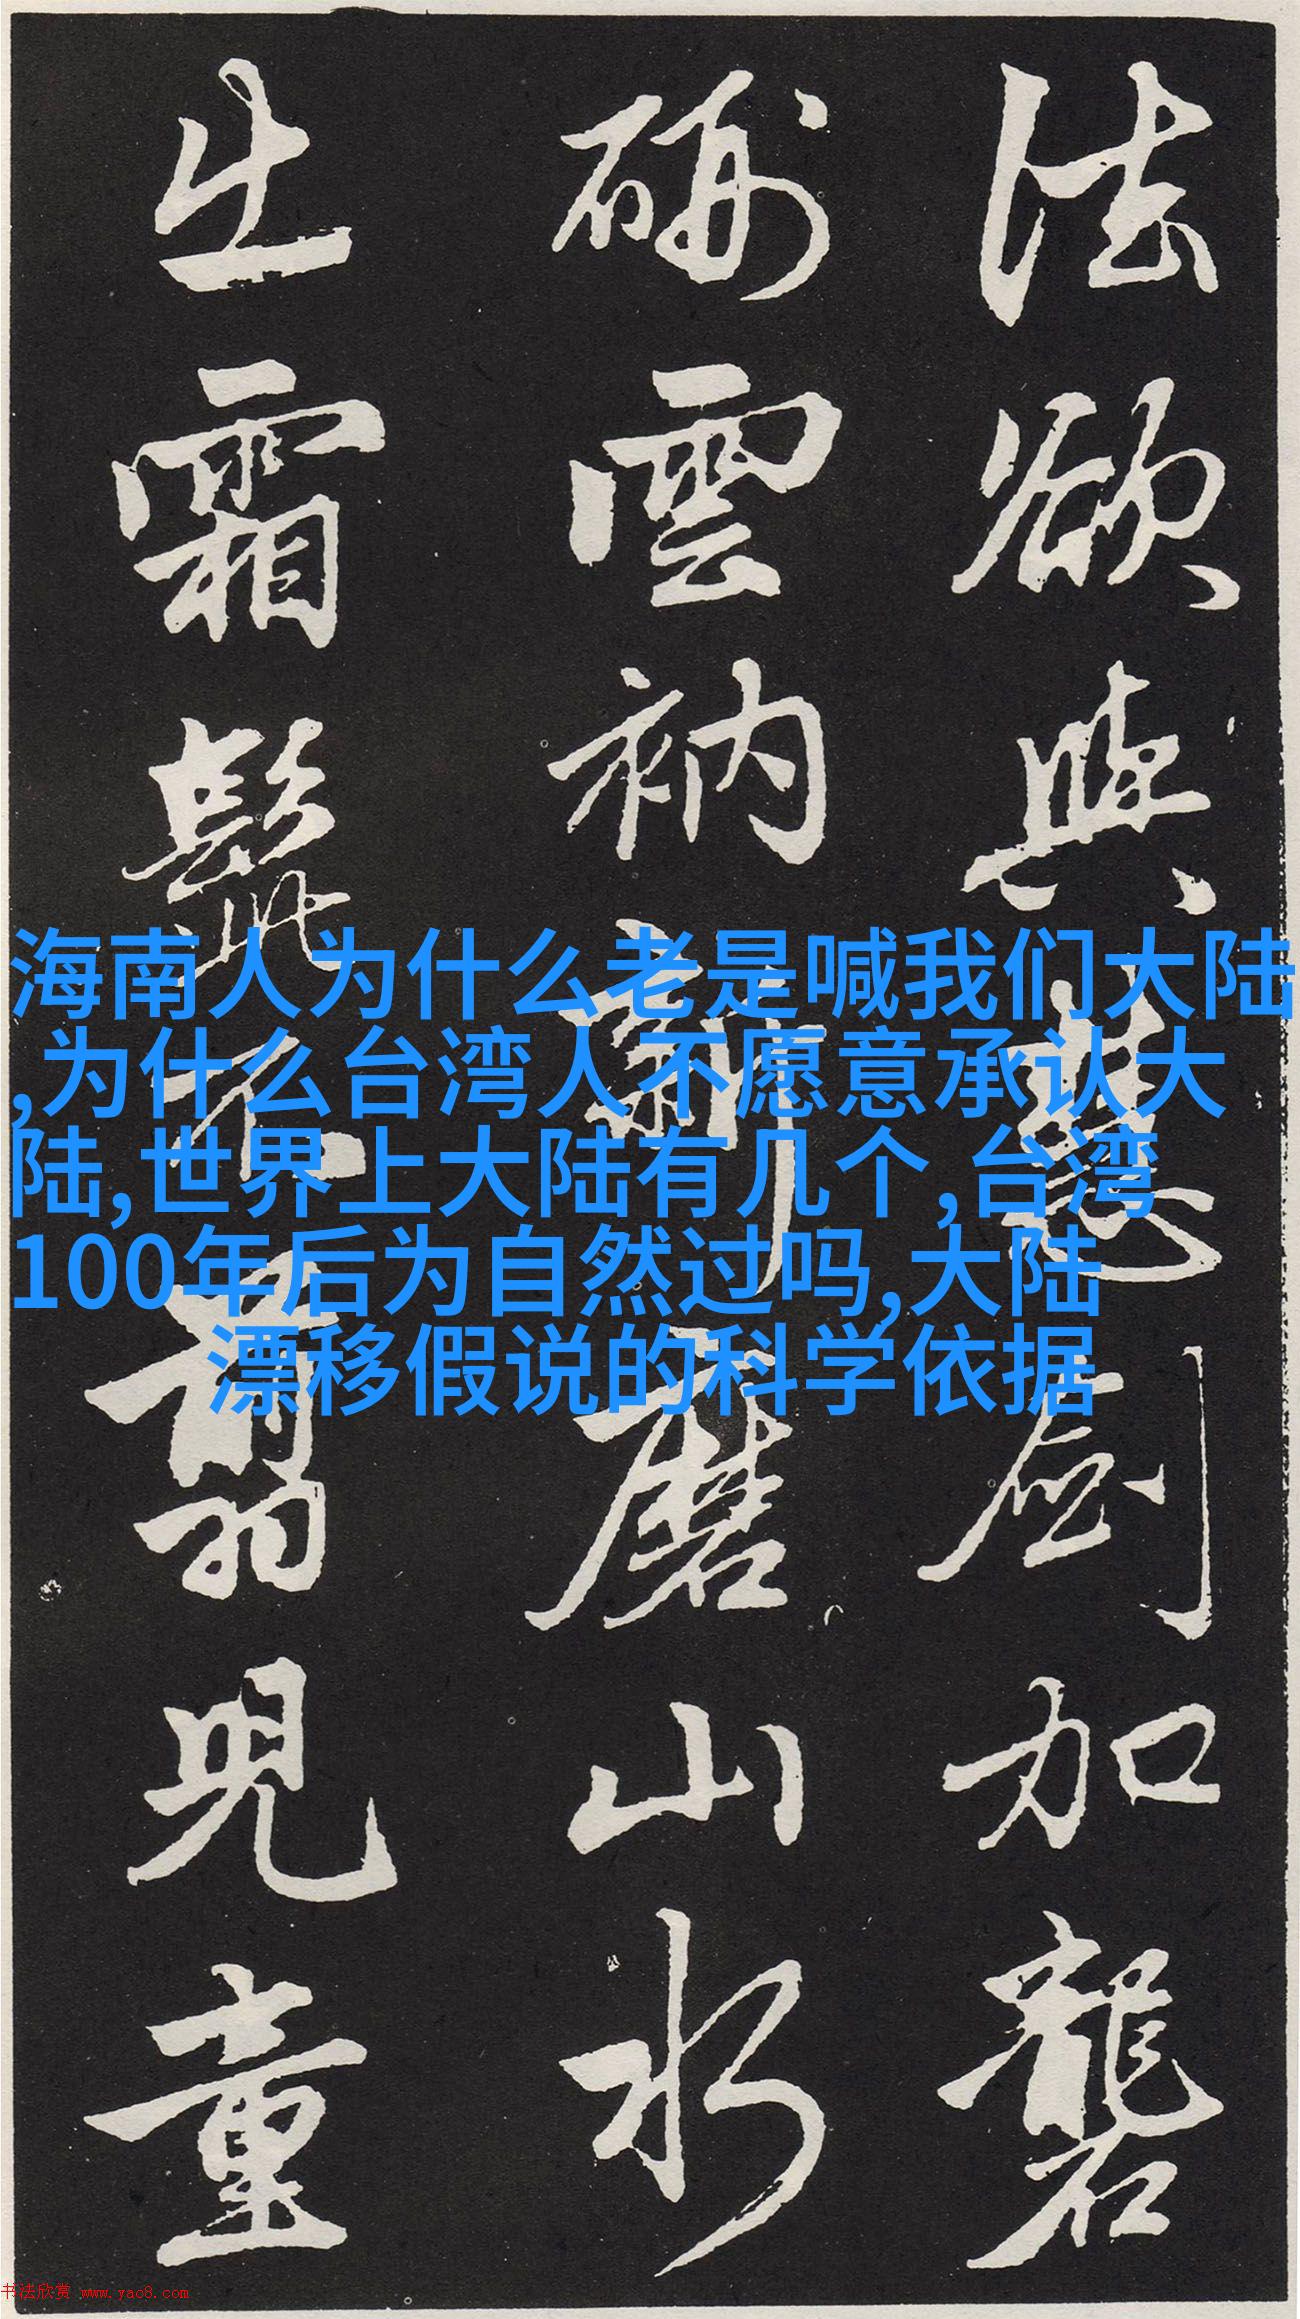 法欲與慧劍加礱
硎雲衲新磨山水
出霜髭不剪兒童
海南人为什么老是喊我们大陆
,为什么台湾人不愿意承认大
陆,世界上大陆有几个,台湾
100年后为自然过吗,大陆
漂移假说的科学依据
书法欣赏 www.yac8.com